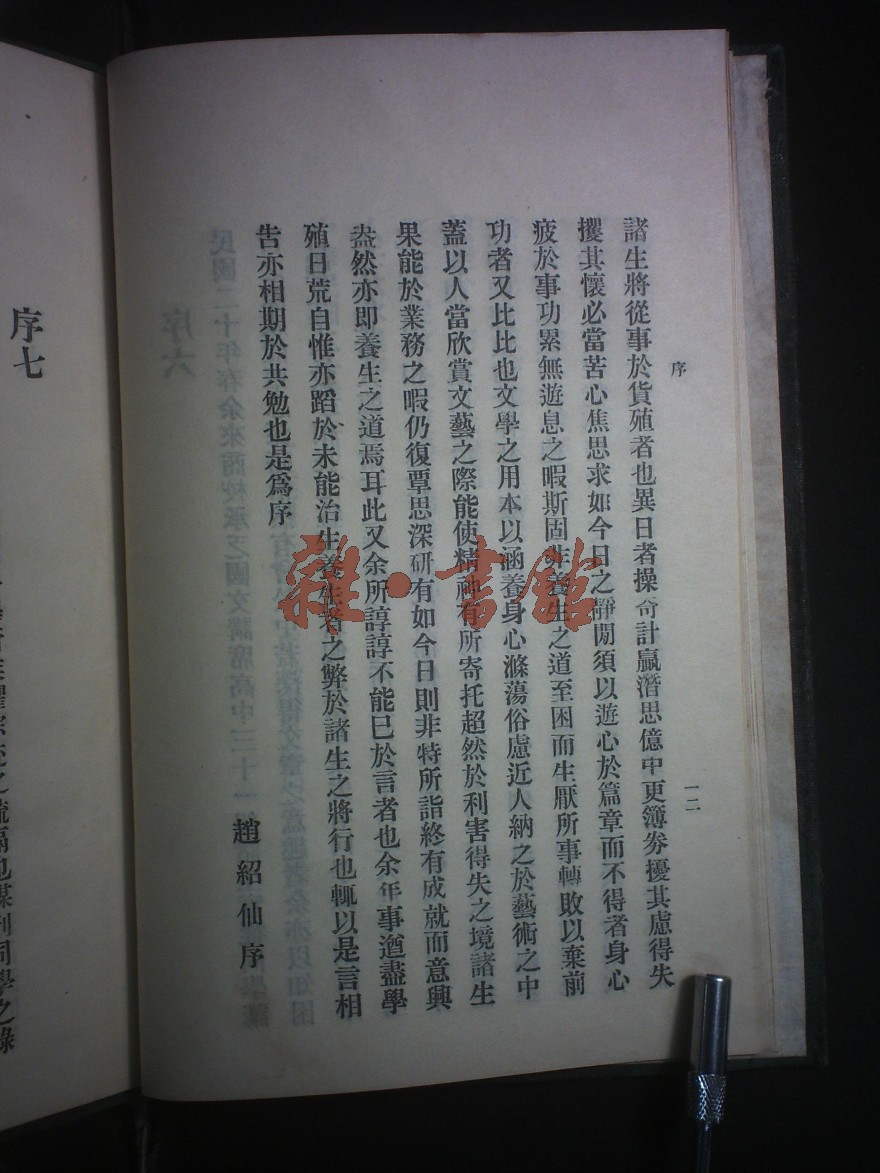 序
一二
諸生將從事於貨殖者也異日者操奇計贏潛思億中更簿劵擾其慮得失
攖其懷必當苦心焦思求如今日之靜閒須以遊心於篇章而不得者身心
疲於事功累無遊息之暇斯固非養生之道至困而生厭所事轉敗以棄前
功者又比比也文學之用本以涵養身心滌蕩俗慮近人納之於藝術之中
蓋以人當欣賞文藝之際能使精神有所寄托超然於利害得失之境諸生
果能於業務之暇仍復覃思深研有如今日則非特所詣終有成就而意興
盎然亦即養生之道焉耳此又余所諄諄不能已於言者也余年事遒盡學
殖日荒自惟亦蹈於未能治生養生者之弊於諸生之將行也輒以是言相
告亦相期於共勉也是爲序
趙紹仙序
序七
雜·書館